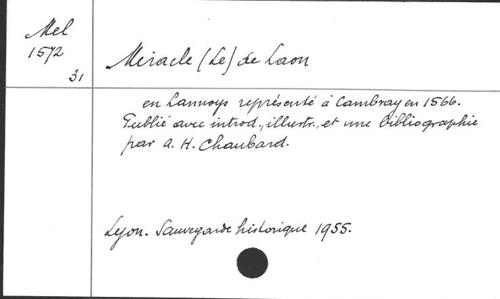 Mel
1572
31
Miracle (Le) de Laon
en Lannoys représenté à Cambray en 1566.
Publié avec introd., illustr., et une bibliographie
par A. H. Chaubard.
Lyon. Sauvegarde historique 1955.